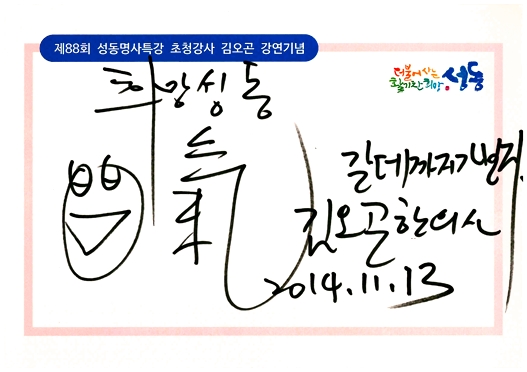 제88회 성동명사특강 초청강사 김오곤 강연기념
더불어사는
활기찬 희망 성동
희망성동
氣
갈데까지가보자.
김오곤한의사
2014.11.13